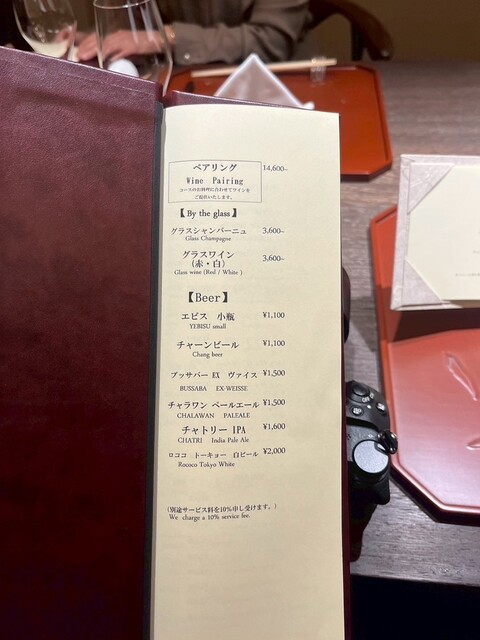 ペアリング 14,600~
Wine Pairing
コースのお料理に合わせてワインを
ご提供いたします。
【By the glass】
グラスシャンパーニュ 3,600~
Glass Champagne
グラスワイン 3,600~
(赤・白)
Glass wine (Red / White )
【Beer】
エビス 小瓶 ¥1,100
YEBISU small
チャーンビール ¥1,100
Chang beer
ブッサバー EX ヴァイス ¥1,500
BUSSABA EX-WEISSE
チャラワン ペールエール ¥1,500
CHALAWAN PALEALE
チャトリー IPA ¥1,600
CHATRI India Pale Ale
ロココ トーキョー 白ビール ¥2,000
Rococo Tokyo White
(別途サービス料を10%申し受けます。)
We charge a 10% service fee.